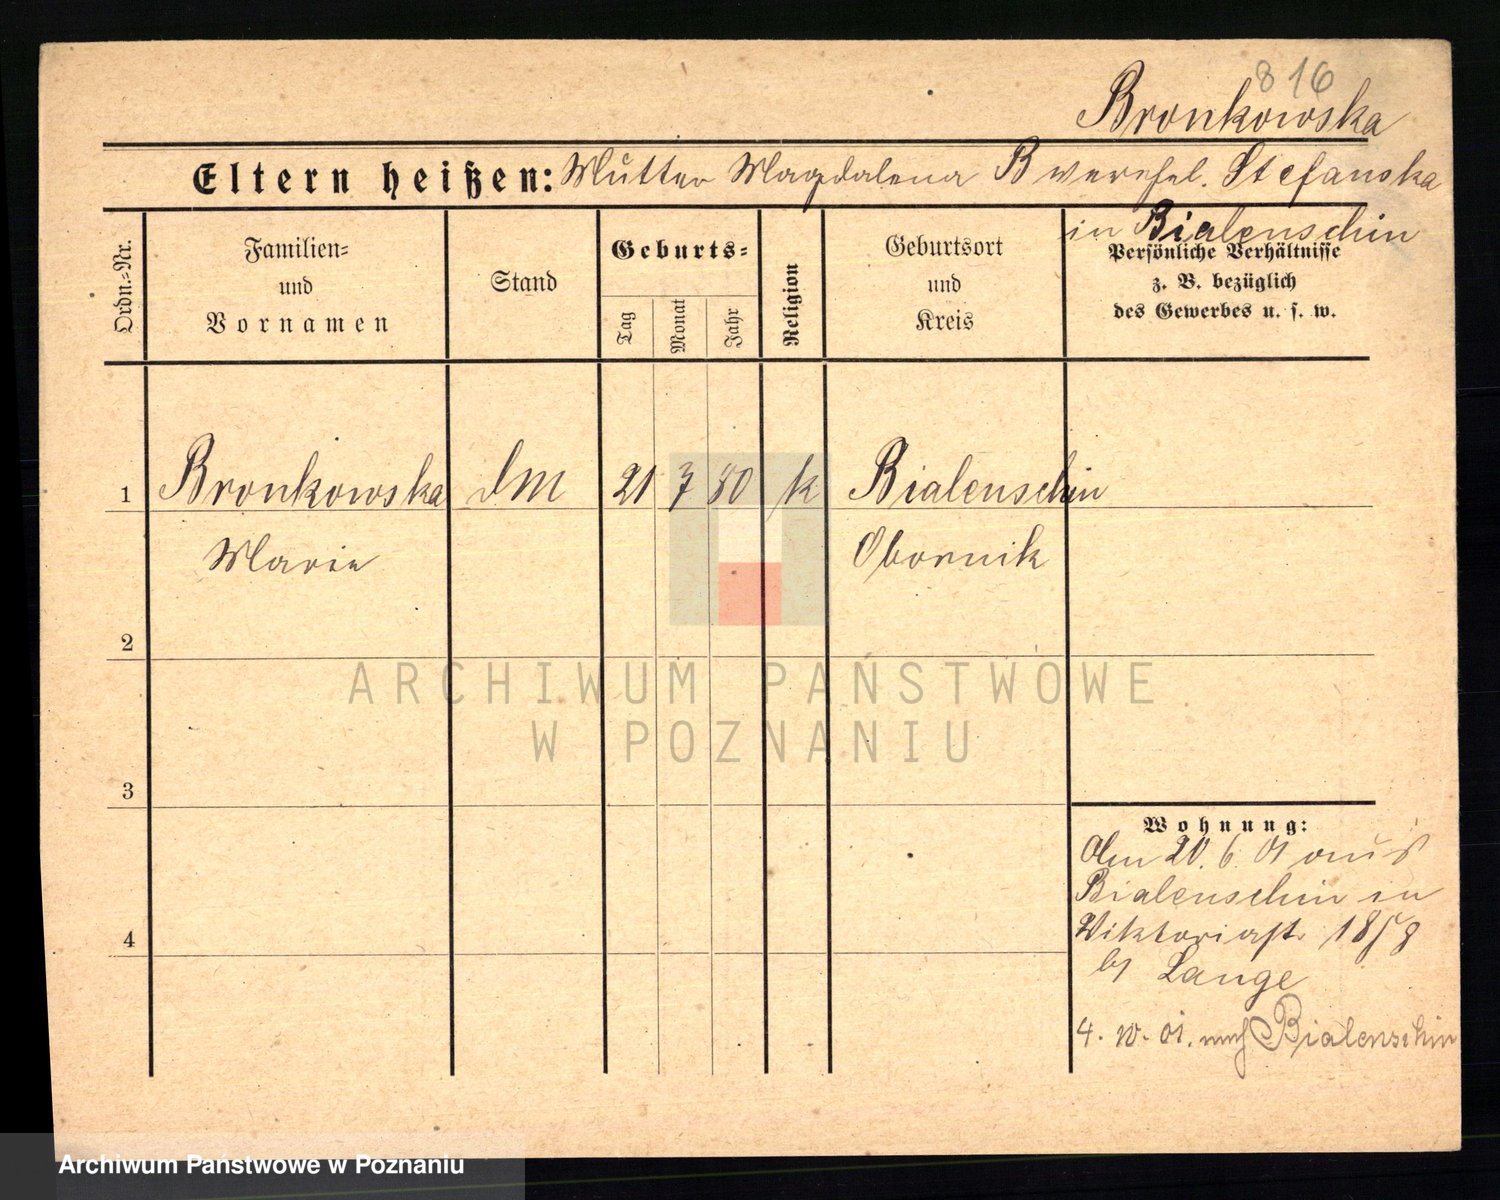 816
Bronkowska
Eltern heißen: Mutter Magdalena B verehel. Stefanska
in Bialenschin
Ordn.-Nr.
Familien-
und
Vornamen
Stand
Geburts-
Tag
Monat
Jahr
Religion
Geburtsort
und
Kreis
Persönliche Verhältnisse
z. B. bezüglich
des Gewerbes u. s. w.
1 Bronkowska dM 21 7 80 k Bialenschin
Marie Obornik
2
3
4
ARCHIWUM PAŃSTWOWE
W POZNANIU
Wohnung:
Am 20. 6. 01 aus
Bialenschin in
Viktoriastr. 18
bei Lange
4. 10. 01. nach Bialenschin
Archiwum Państwowe w Poznaniu